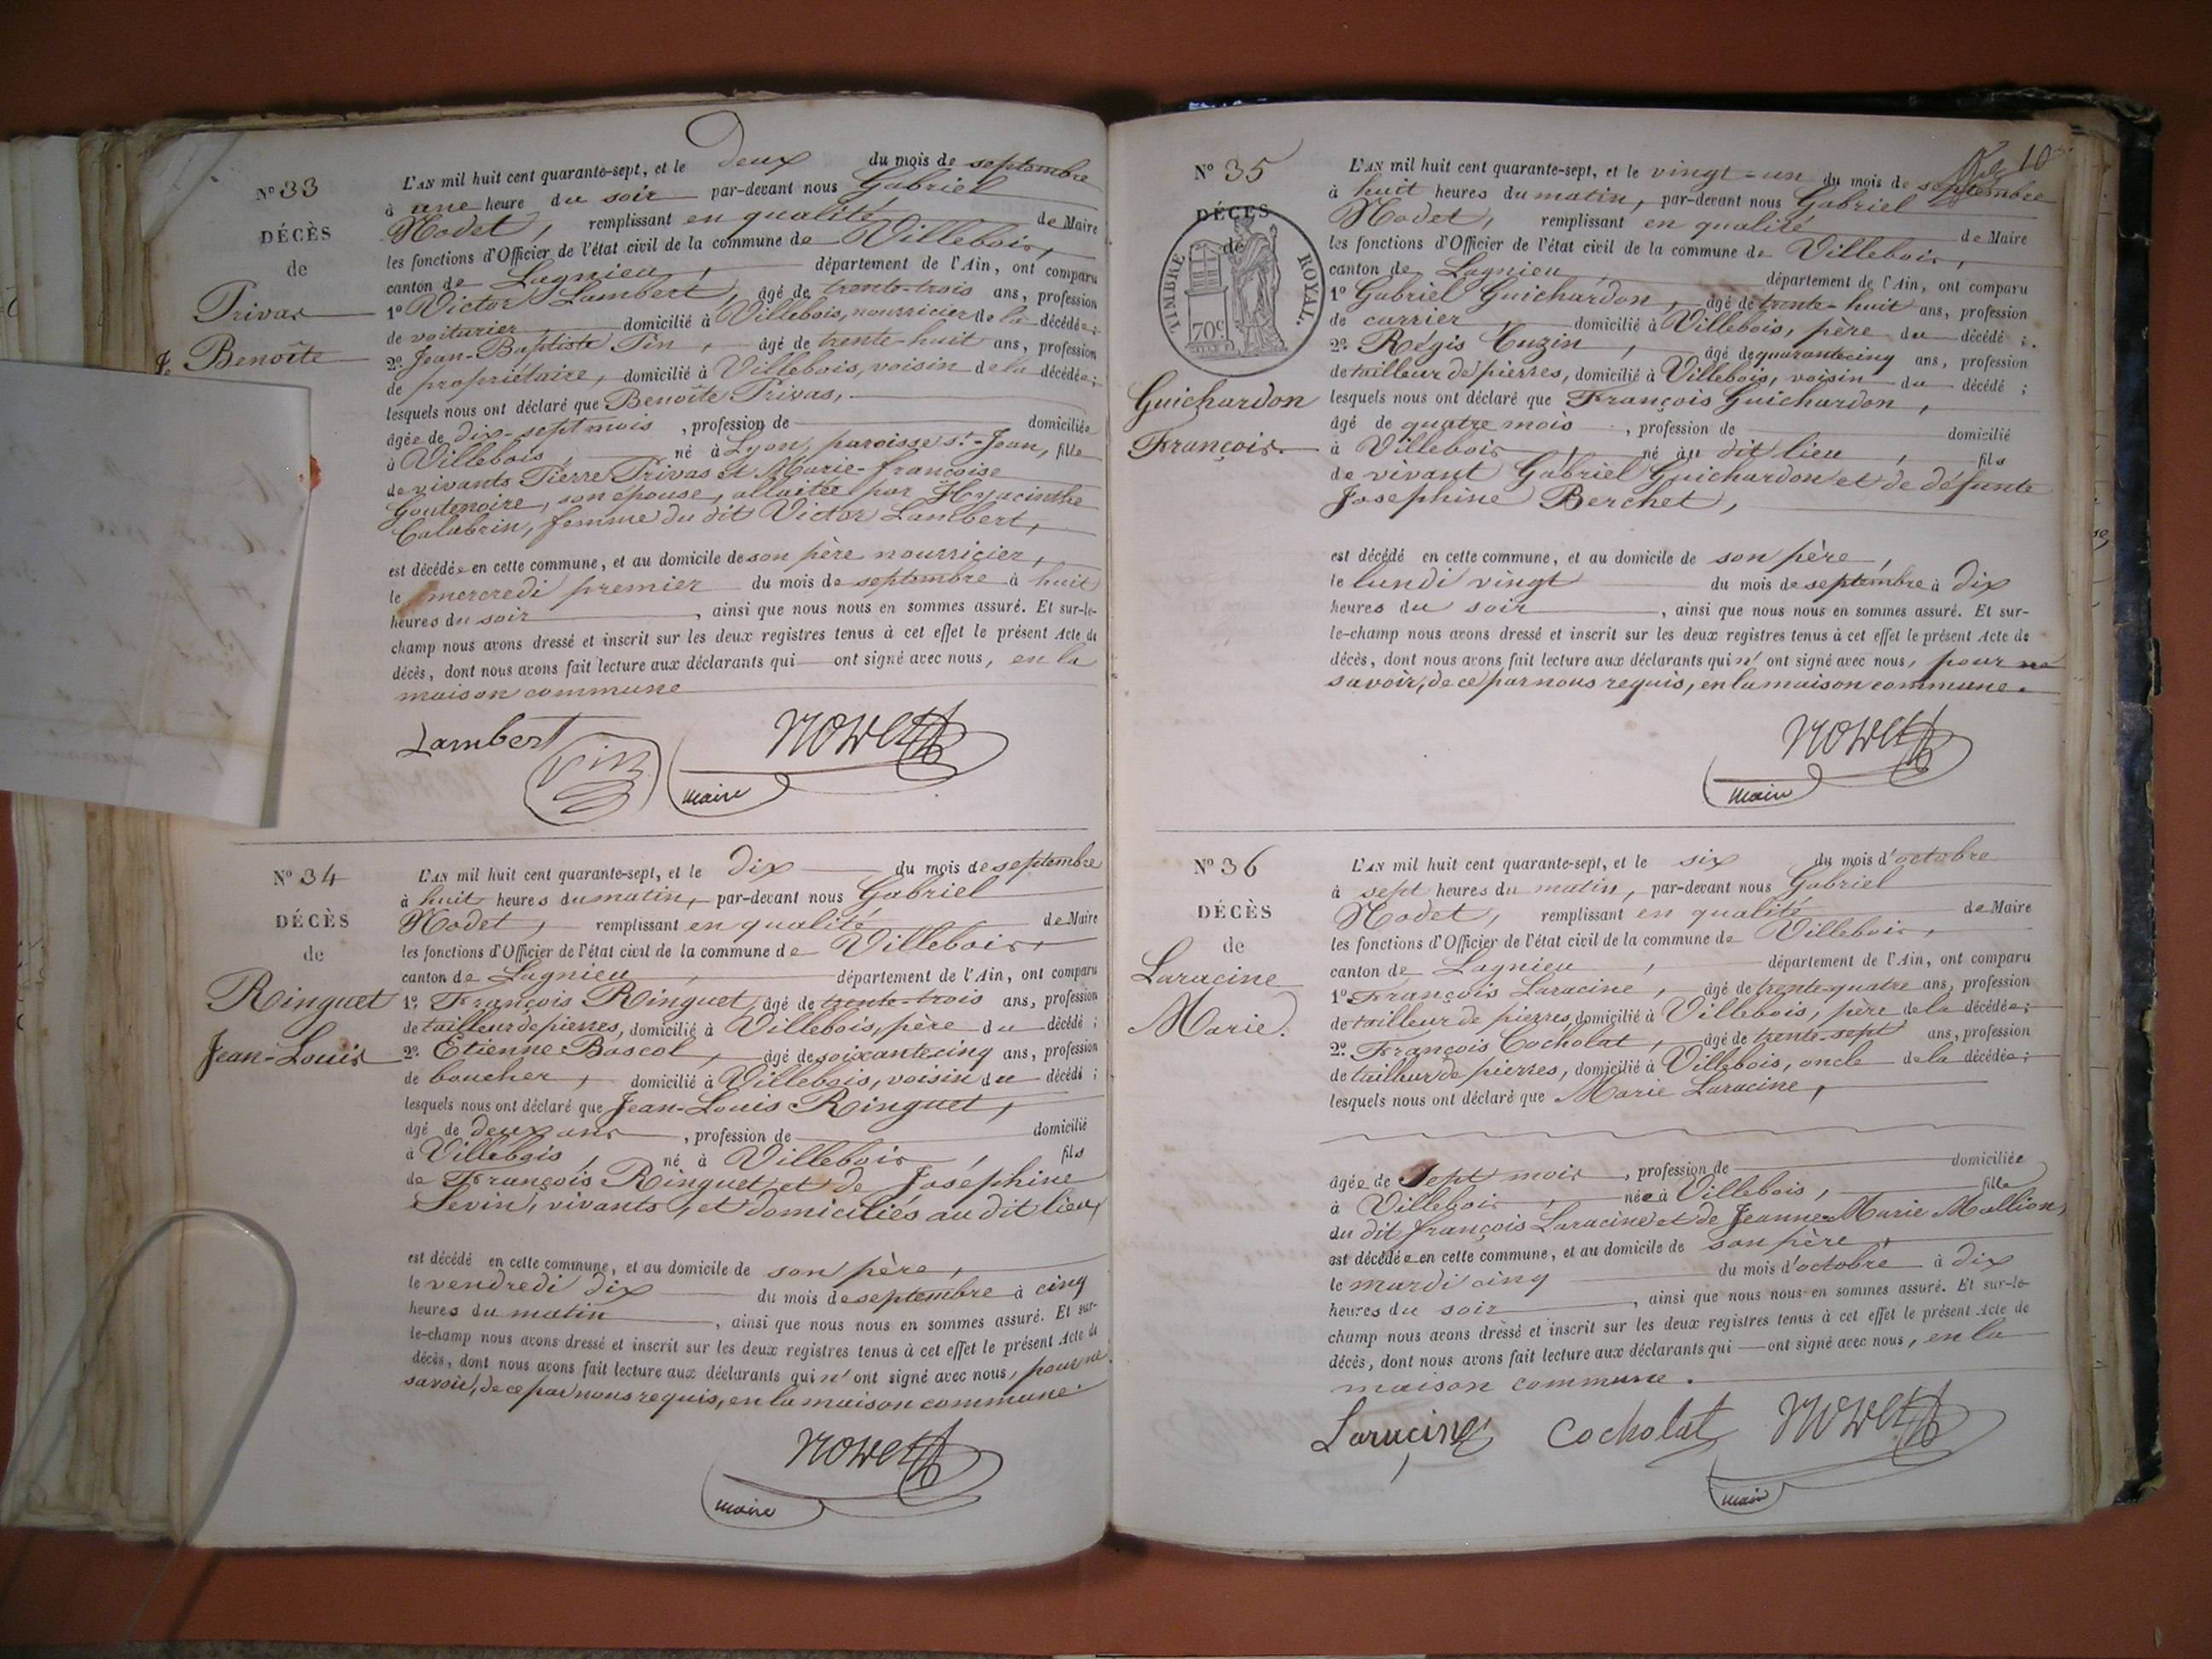 N° 33
DÉCÈS
de
Privas
Benoîte
L'AN mil huit cent quarante-sept, et le deux du mois de septembre
à une heure du soir par-devant nous Gabriel
Nodet, remplissant en qualité de Maire
les fonctions d'Officier de l'état civil de la commune de Villebois,
canton de Lagnieu, département de l'Ain, ont comparu
1° Victor Lambert, âgé de trente-trois ans, profession
de voiturier, domicilié à Villebois, nourricier de la décédée;
2° Jean-Baptiste Pin, âgé de trente-huit ans, profession
de propriétaire, domicilié à Villebois, voisin de la décédée;
lesquels nous ont déclaré que Benoîte Privas,
âgée de dix-sept mois, profession de domiciliée
à Villebois, né à Lyon, paroisse St-Jean, fille
de vivants Pierre Privas et Marie-françoise
Goutenoire, son épouse, allaitée par Hyacinthe
Calabrin, femme du dit Victor Lambert,
est décédée en cette commune, et au domicile de son père nourricier,
le mercredi premier du mois de septembre à huit
heures du soir, ainsi que nous nous en sommes assuré. Et sur-le-
champ nous avons dressé et inscrit sur les deux registres tenus à cet effet le présent Acte de
décès, dont nous avons fait lecture aux déclarants qui ont signé avec nous, en la
maison commune
Lambert
Pin
Nodet
maire
N° 34
DÉCÈS
de
Ringuet
Jean-Louis
L'AN mil huit cent quarante-sept, et le dix du mois de septembre
à huit heures du matin, par-devant nous Gabriel
Nodet, remplissant en qualité de Maire
les fonctions d'Officier de l'état civil de la commune de Villebois,
canton de Lagnieu, département de l'Ain, ont comparu
1° François Ringuet, âgé de trente-trois ans, profession
de tailleur de pierres, domicilié à Villebois, père du décédé;
2° Etienne Bascol, âgé de soixante cinq ans, profession
de boucher, domicilié à Villebois, voisin du décédé;
lesquels nous ont déclaré que Jean-Louis Ringuet,
âgé de deux ans, profession de domicilié
à Villebois, né à Villebois, fils
de François Ringuet et de Joséphine
Sevin, vivants, et domiciliés au dit lieu,
est décédé en cette commune, et au domicile de son père,
le vendredi dix du mois de septembre à cinq
heures du matin, ainsi que nous nous en sommes assuré. Et sur-
le-champ nous avons dressé et inscrit sur les deux registres tenus à cet effet le présent Acte de
décès, dont nous avons fait lecture aux déclarants qui n'ont signé avec nous, pour ne
savoir, de ce par nous requis, en la maison commune.
Nodet
maire
N° 35
DÉCÈS
de
TIMBRE ROYAL.
70c
Guichardon
François.
L'AN mil huit cent quarante-sept, et le vingt-un du mois de septembre
à huit heures du matin, par-devant nous Gabriel
Nodet, remplissant en qualité de Maire
les fonctions d'Officier de l'état civil de la commune de Villebois,
canton de Lagnieu, département de l'Ain, ont comparu
1° Gabriel Guichardon, âgé de trente-huit ans, profession
de carrier, domicilié à Villebois, père du décédé;
2° Régis Cuzin, âgé de quarante cinq ans, profession
de tailleur de pierres, domicilié à Villebois, voisin du décédé;
lesquels nous ont déclaré que François Guichardon,
âgé de quatre mois, profession de domicilié
à Villebois, né au dit lieu, fils
de vivant Gabriel Guichardon et de défunte
Josephine Berchet,
est décédé en cette commune, et au domicile de son père,
le lundi vingt du mois de septembre à dix
heures du soir, ainsi que nous nous en sommes assuré. Et sur-
le-champ nous avons dressé et inscrit sur les deux registres tenus à cet effet le présent Acte de
décès, dont nous avons fait lecture aux déclarants qui n'ont signé avec nous, pour ne
savoir, de ce par nous requis, en la maison commune.
Nodet
maire
N° 36
DÉCÈS
de
Laracine
Marie.
L'AN mil huit cent quarante-sept, et le six du mois d'octobre
à sept heures du matin, par-devant nous Gabriel
Nodet, remplissant en qualité de Maire
les fonctions d'Officier de l'état civil de la commune de Villebois,
canton de Lagnieu, département de l'Ain, ont comparu
1° François Laracine, âgé de trente-quatre ans, profession
de tailleur de pierres, domicilié à Villebois, père de la décédée;
2° François Cocholat, âgé de trente-sept ans, profession
de tailleur de pierres, domicilié à Villebois, oncle de la décédée;
lesquels nous ont déclaré que Marie Laracine,
âgée de sept mois, profession de domiciliée
à Villebois, née à Villebois, fille
du dit françois Laracine et de Jeanne-Marie Mallion,
est décédée en cette commune, et au domicile de son père,
le mardi cinq du mois d'octobre à dix
heures du soir, ainsi que nous nous en sommes assuré. Et sur-le-
champ nous avons dressé et inscrit sur les deux registres tenus à cet effet le présent Acte de
décès, dont nous avons fait lecture aux déclarants qui ont signé avec nous, en la
maison commune.
Laracine Cocholat Nodet
maire